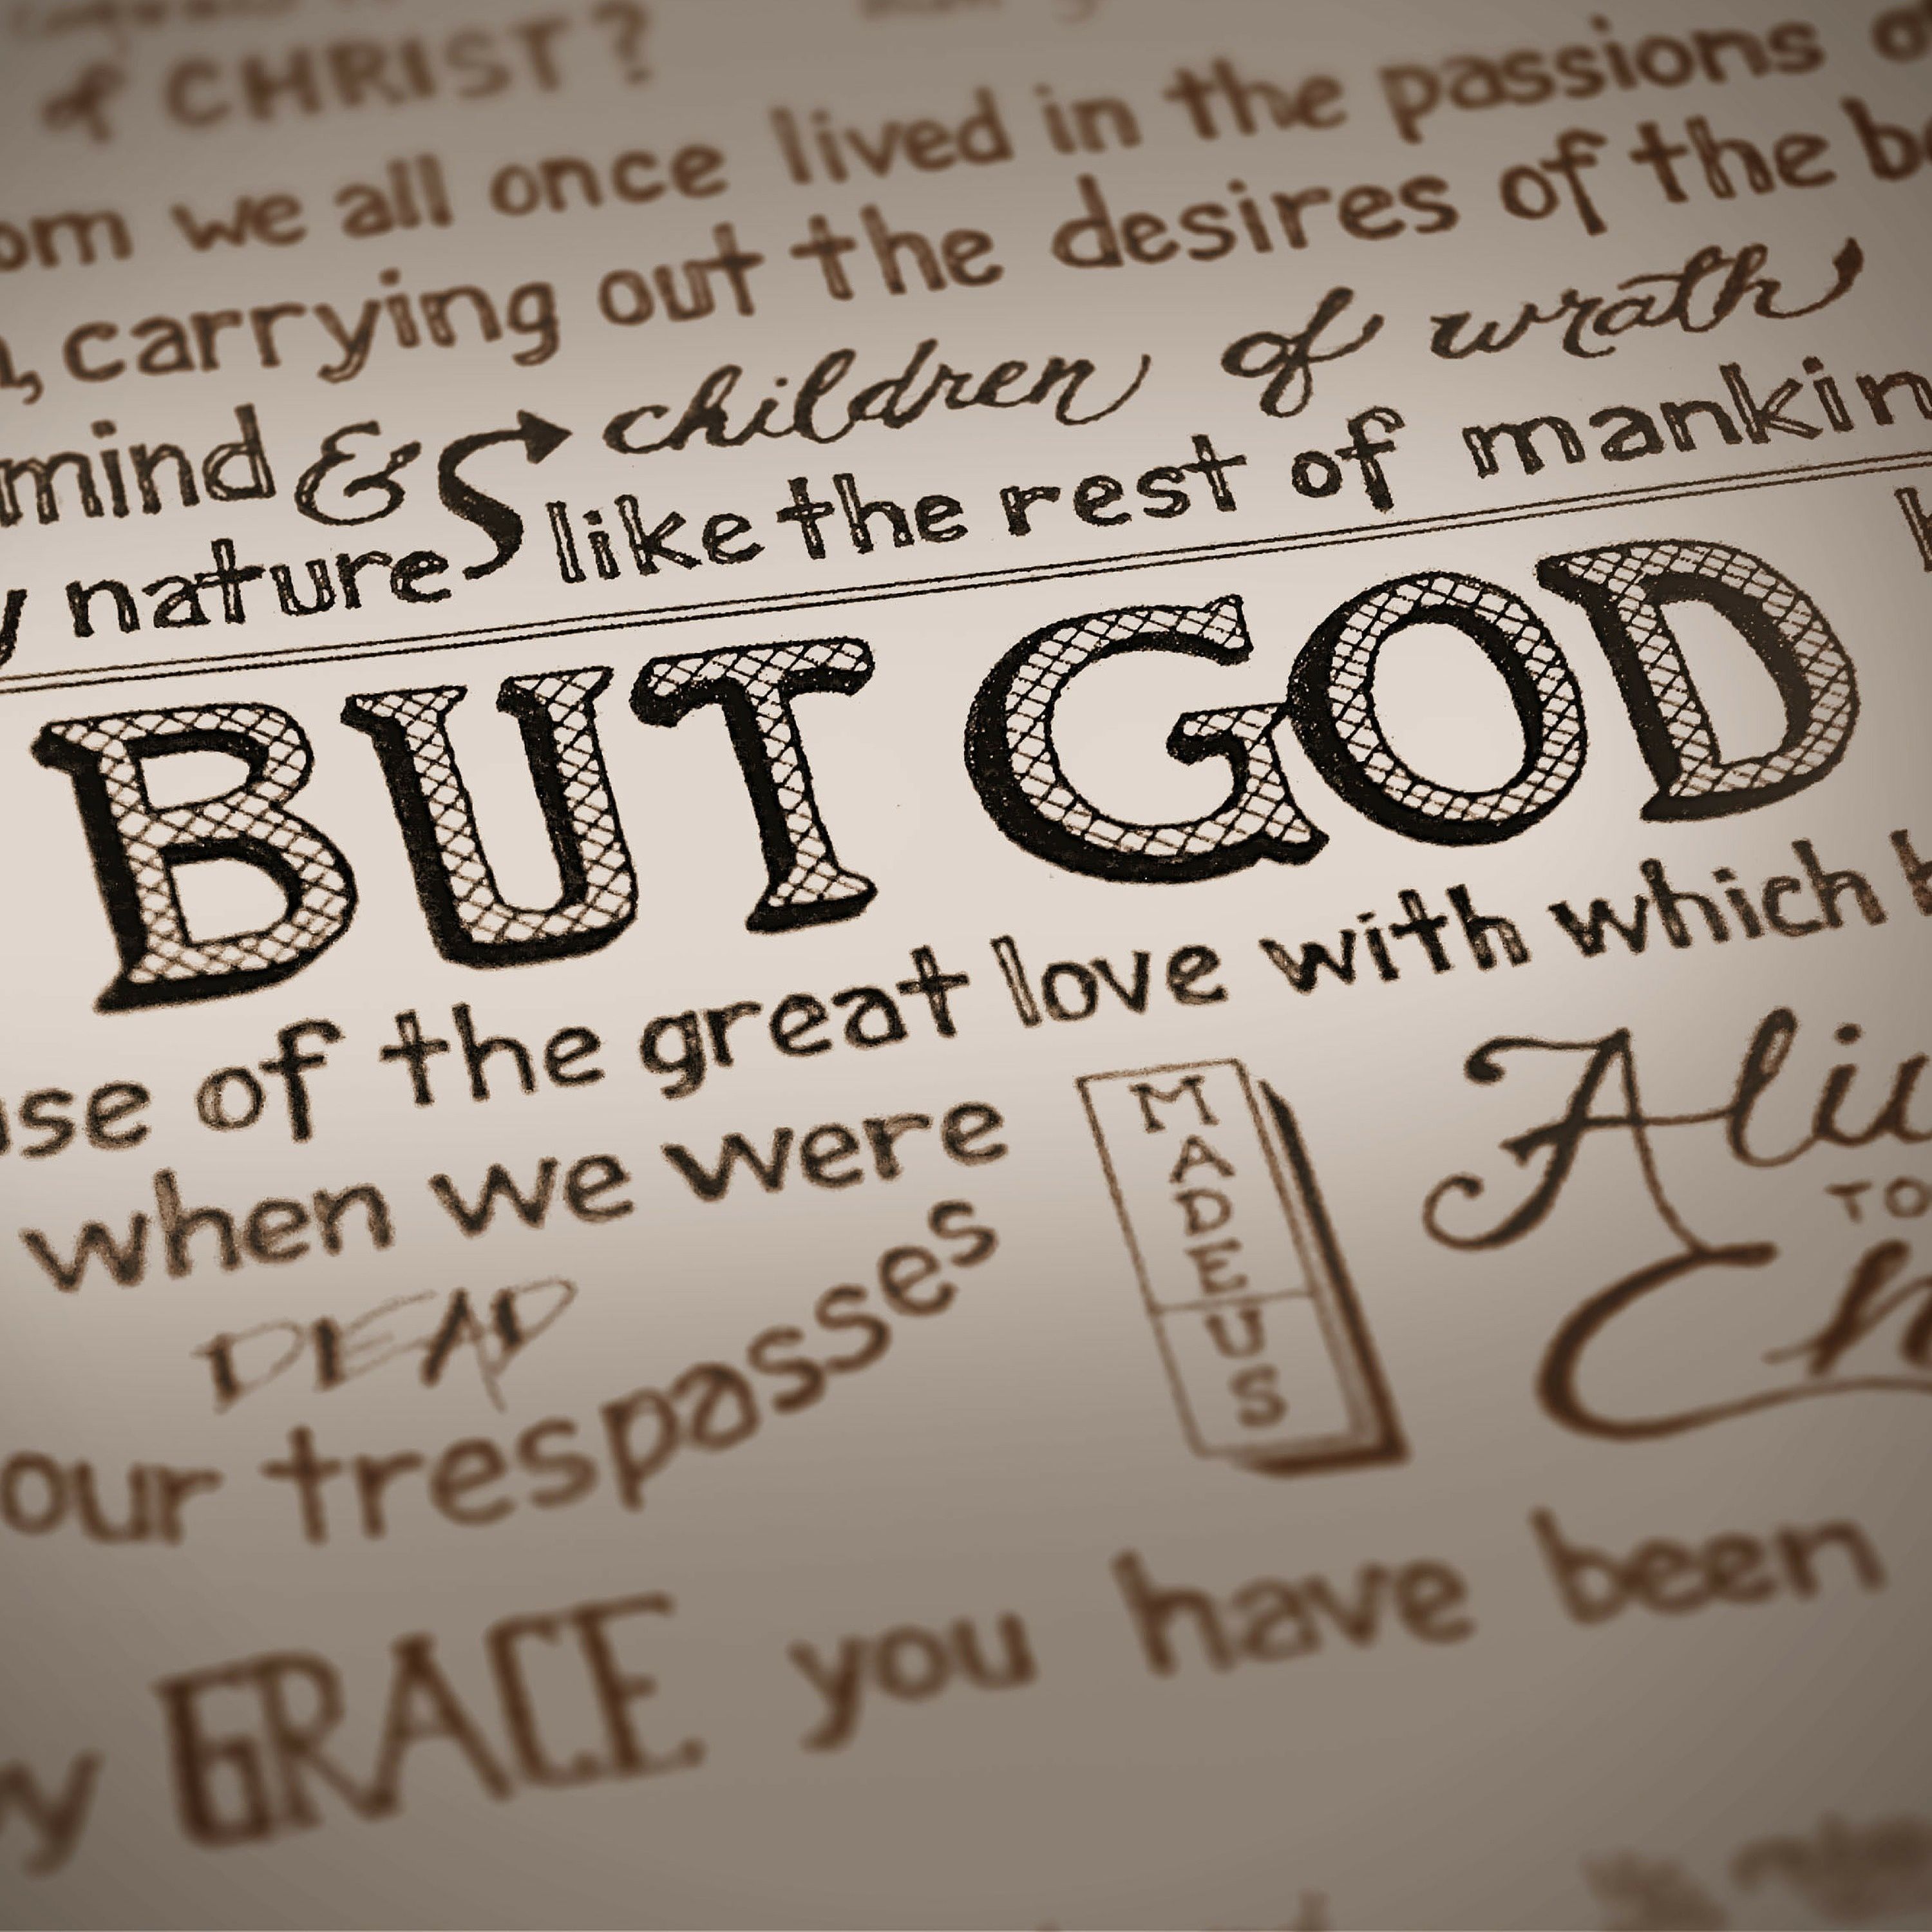 of CHRIST?
om we all once lived in the passions
, carrying out the desires of the
mind & children of wrath
nature like the rest of mankin
BUT GOD
se of the great love with which
when we were
MADE US
Aliv
TO
DEAD
our trespasses
Ch
y GRACE you have been